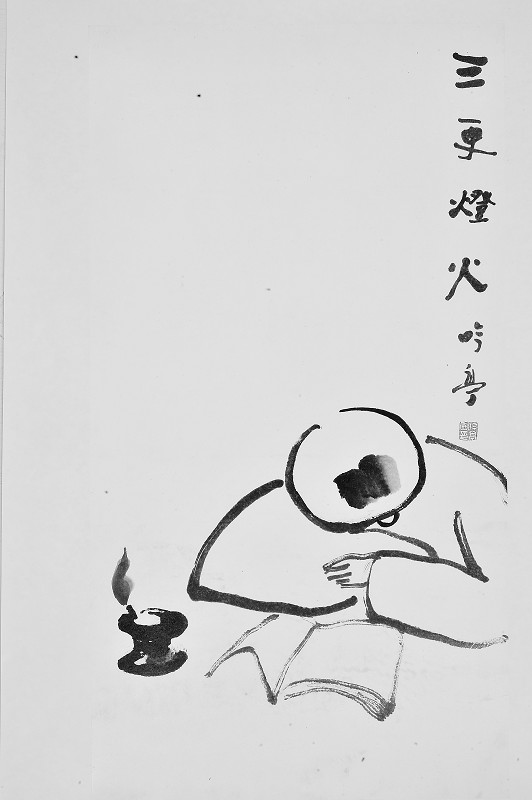 三更燈火
吟亭